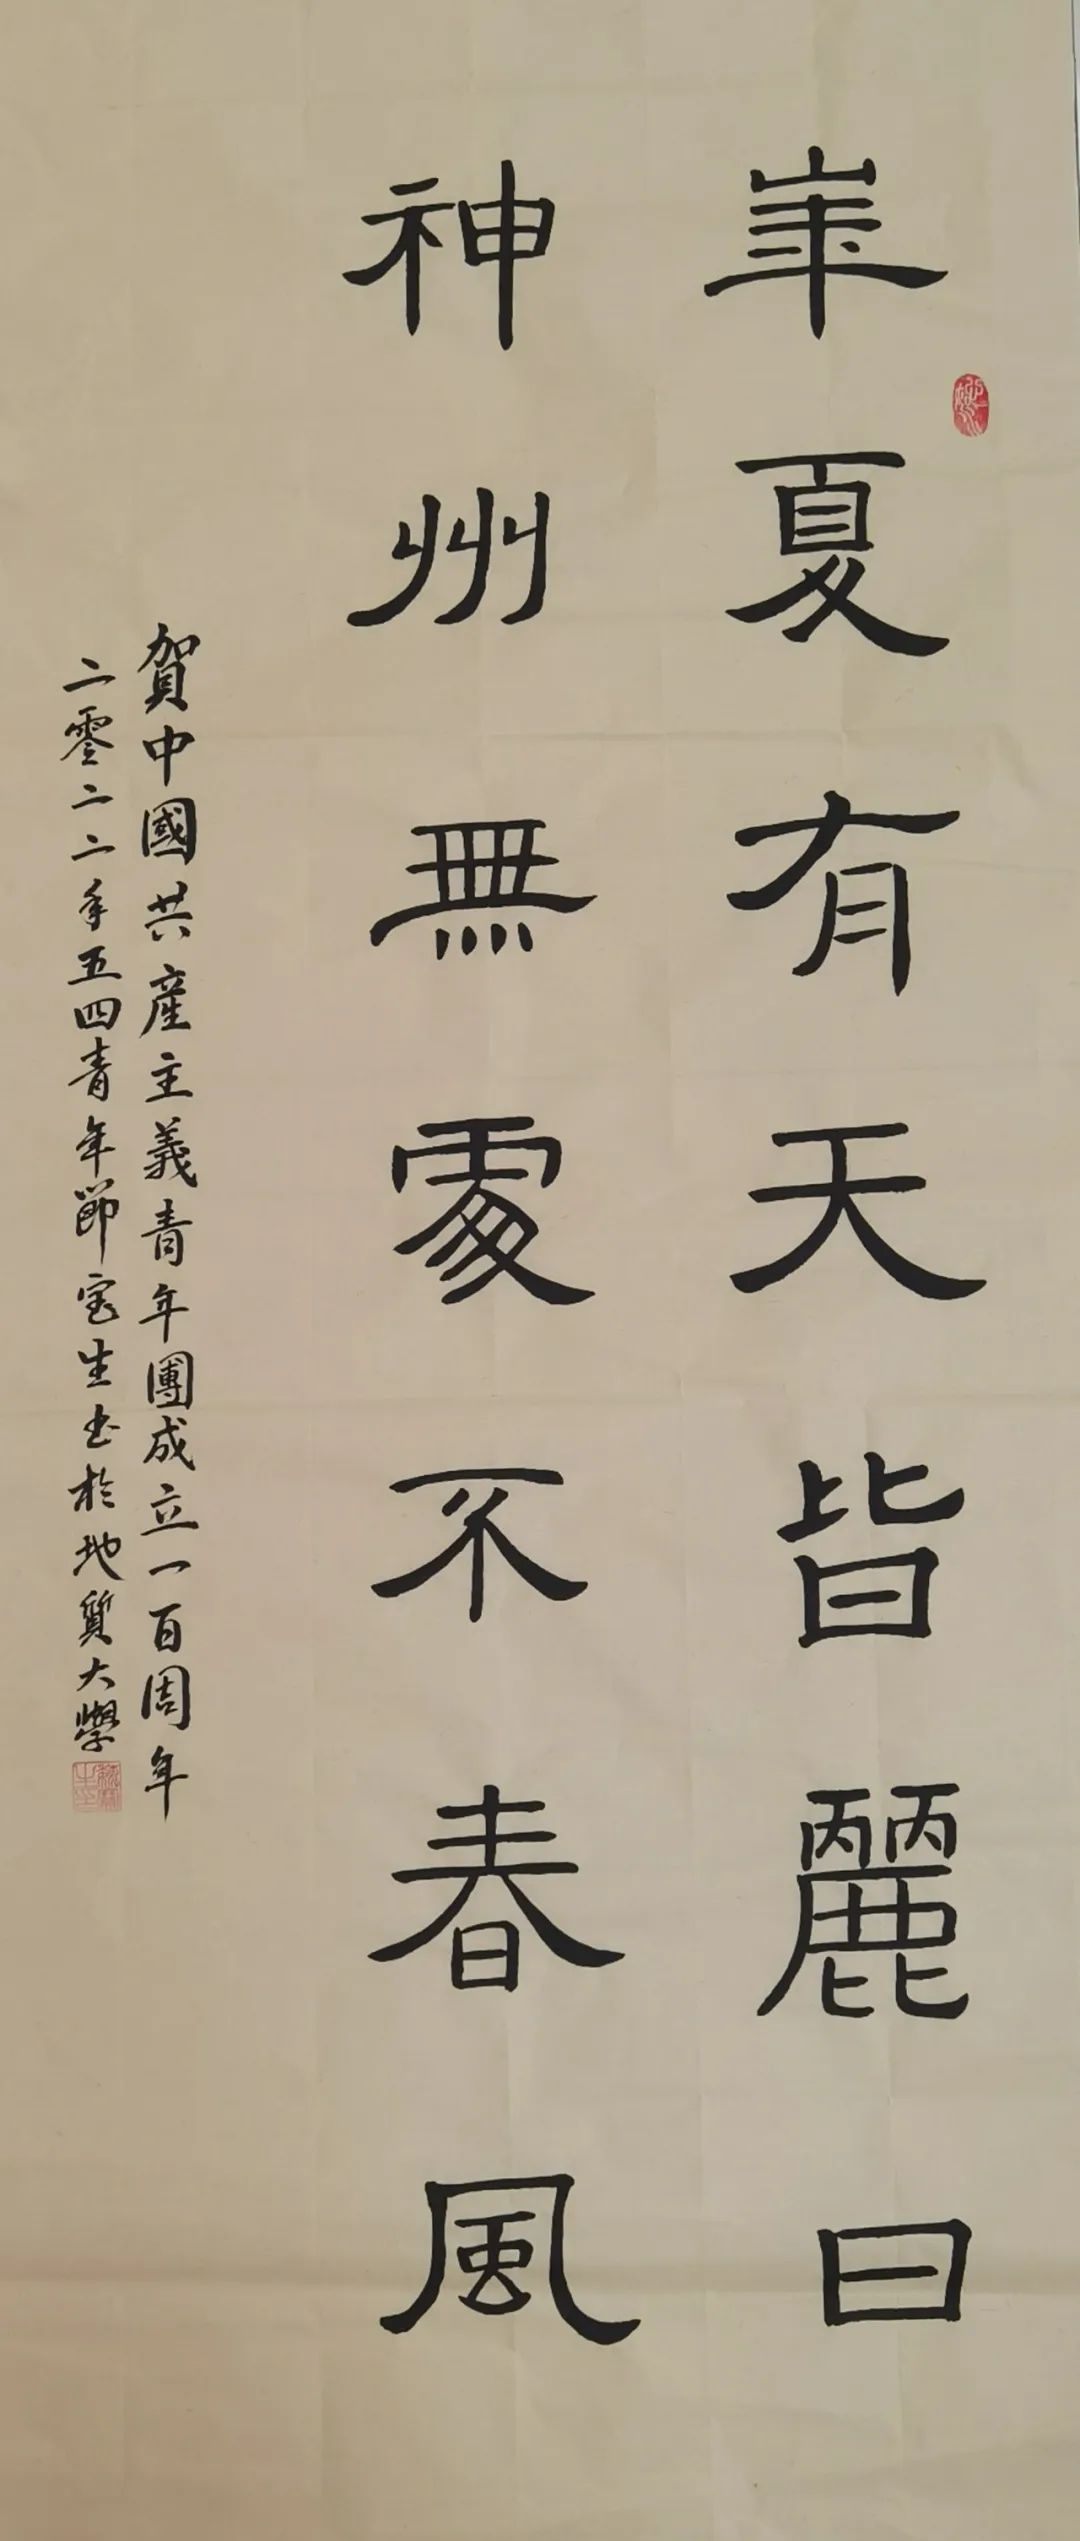 崋夏有天皆麗日
神州無處不春風
賀中國共產主義青年團成立一百周年
二零二二年五四青年節宝生书於地質大學